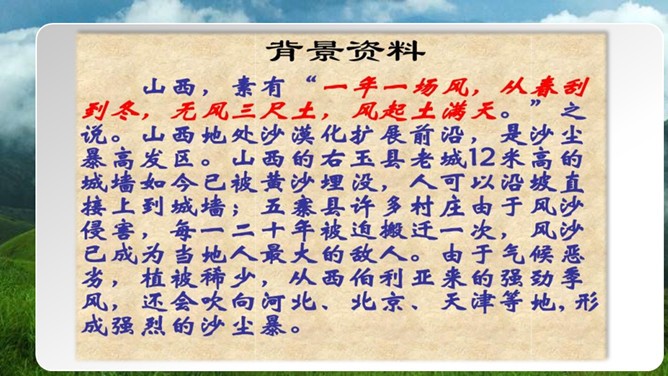 背景资料
山西，素有“一年一场风，从春刮
到冬，无风三尺土，风起土满天。”之
说。山西地处沙漠化扩展前沿，是沙尘
暴高发区。山西的右玉县老城12米高的
城墙如今已被黄沙埋没，人可以沿坡直
接上到城墙；五寨县许多村庄由于风沙
侵害，每一二十年被迫搬迁一次，风沙
已成为当地人最大的敌人。由于气候恶
劣，植被稀少，从西伯利亚来的强劲季
风，还会吹向河北、北京、天津等地,形
成强烈的沙尘暴。